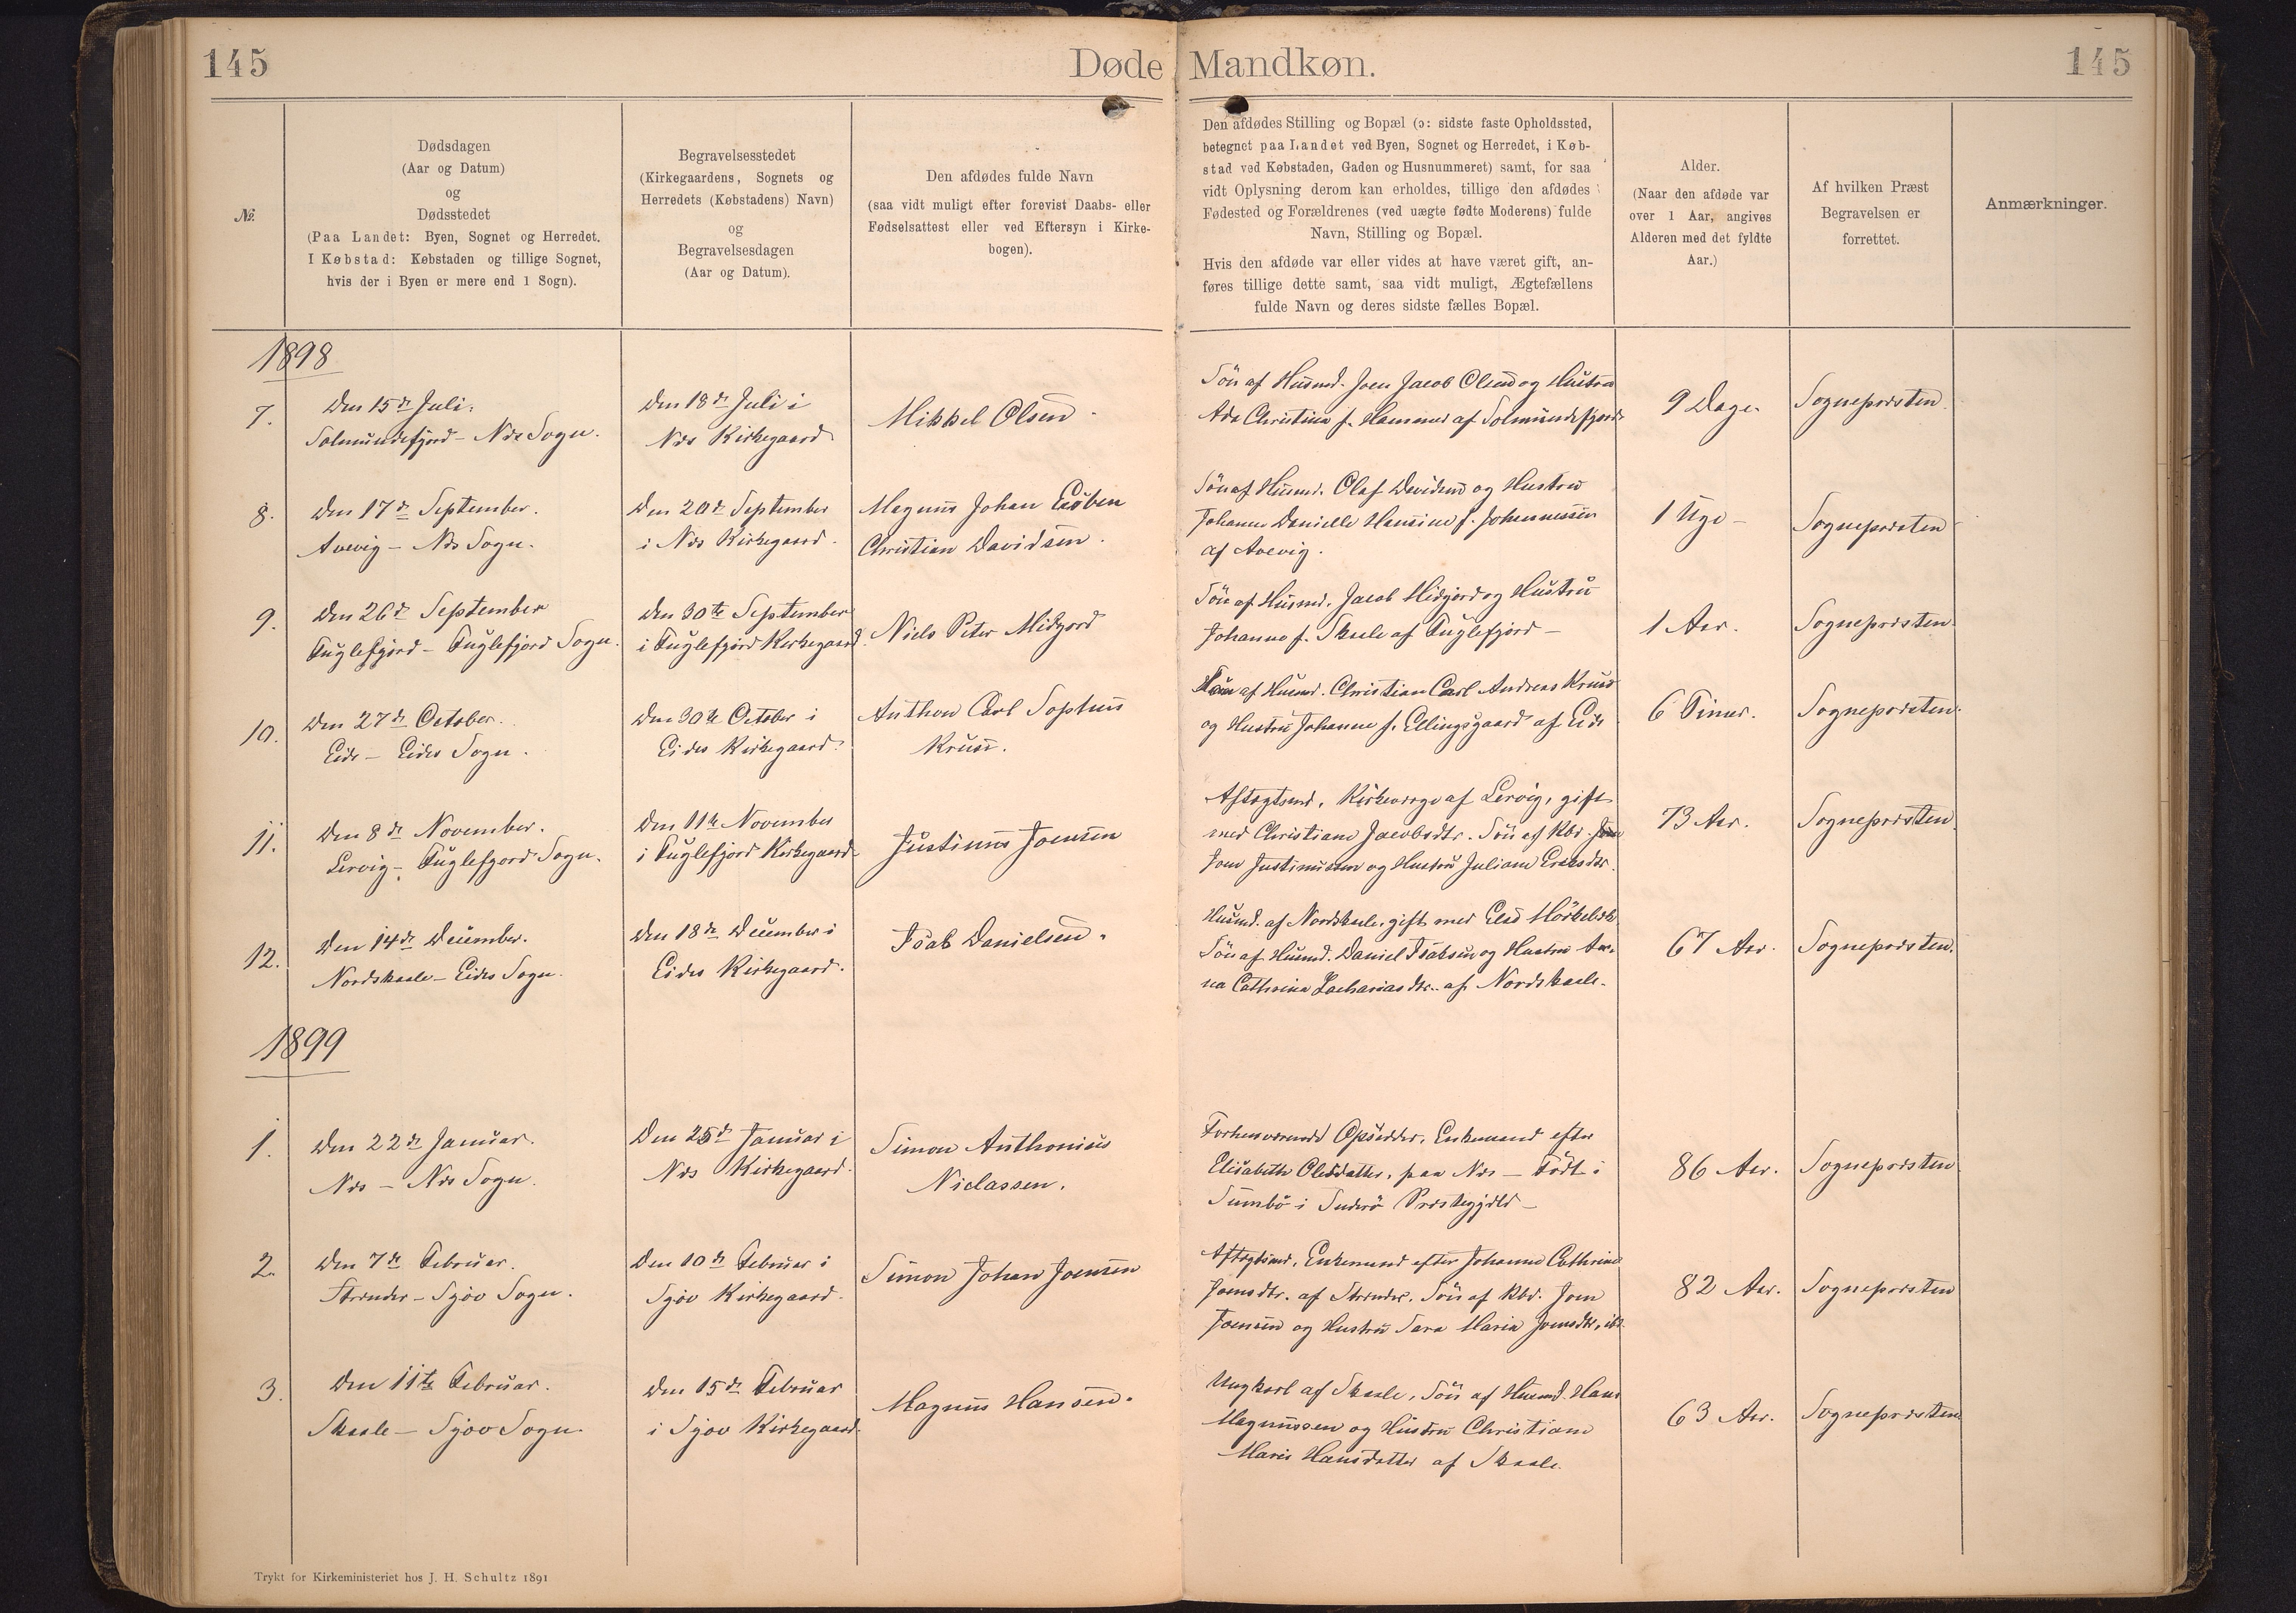 145
Døde Mandkøn.
145
№.
Dødsdagen
(Aar og Datum)
og
Dødsstedet
(Paa Landet: Byen, Sognet og Herredet.
I Købstad: Købstaden og tillige Sognet,
hvis der i Byen er mere end 1 Sogn).
Begravelsesstedet
(Kirkegaardens, Sognets og
Herredets (Købstadens) Navn)
og
Begravelsesdagen
(Aar og Datum).
Den afdødes fulde Navn
(saa vidt muligt efter forevist Daabs- eller
Fødselsattest eller ved Eftersyn i Kirke-
bogen).
Den afdødes Stilling og Bopæl (ɔ: sidste faste Opholdssted,
betegnet paa Landet ved Byen, Sognet og Herredet, i Køb-
stad ved Købstaden, Gaden og Husnummeret) samt, for saa
vidt Oplysning derom kan erholdes, tillige den afdødes
Fødested og Forældrenes (ved uægte fødte Moderens) fulde
Navn, Stilling og Bopæl.
Hvis den afdøde var eller vides at have været gift, an-
føres tillige dette samt, saa vidt muligt, Ægtefællens
fulde Navn og deres sidste fælles Bopæl.
Alder.
(Naar den afdøde var
over 1 Aar, angives
Alderen med det fyldte
Aar.)
Af hvilken Præst
Begravelsen er
forrettet.
Anmærkninger.
1898
7.
Den 15de Juli.
Solmundefjord - Næs Sogn.
Den 18de Juli i
Næs Kirkegaard
Mikkel Olsen
Søn af Husmd. Joen Jacob Olsen og Hustru
Ada Christina f. Hammer af Solmundefjord
9 Dage.
Sognepræsten.
8.
Den 17de September.
Avevig - Næs Sogn.
Den 20de September
i Næs Kirkegaard.
Magnus Johan Esøben
Christian Davidsen.
Søn af Husmd. Olaf Davidsen og Hustru
Johanne Danielle Hansine f. Johannessen
af Avevig.
1 Uge -
Sognepræsten
9.
Den 26de September
Fuglefjord - Fuglefjord Sogn.
Den 30te September
i Fuglefjord Kirkegaard.
Niels Peter Midjord
Søn af Husmd. Jacob Midjord og Hustru
Johanne f. Skaale af Fuglefjord -
1 Aar.
Sognepræsten.
10.
Den 27de October.
Eide - Eides Sogn.
Den 30te October i
Eides Kirkegaard.
Anthon Carl Sophus
Kruse.
Søn af Husmd. Christian Carl Andreas Kruse
og Hustru Johanne f. Ellingsgaard af Eide
6 Timer.
Sognepræsten.
11.
Den 8de November.
Lervig - Fuglefjord Sogn.
Den 11te November
i Fuglefjord Kirkegaard
Justinus Joensen
Aftægtsmd., Kirkeværge af Lervig, gift
med Christiane Jacobsdtr. Søn af Kbd.
Joen Justinussen og Hustru Juliane Eriksdtr.
73 Aar.
Sognepræsten.
12.
Den 14de December.
Nordskaale - Eides Sogn.
Den 18de December i
Eides Kirkegaard.
Isak Danielsen.
Husmd. af Nordskaale, gift med Else
Søn af Husmd. Daniel Isaksen og Hustru An-
na Cathrine Zachariasdtr. af Nordskaale.
67 Aar.
Sognepræsten.
1899
1.
Den 22de Januar.
Næs - Næs Sogn.
Den 25de Januar i
Næs Kirkegaard.
Simon Anthonius
Niclassen.
Forhenværende Opsidder, Enkemand efter
Elisabeth Olesdatter, paa Næs - Født i
Sumbø i Suderø Præstegjeld -
86 Aar.
Sognepræsten
2.
Den 7de Februar.
Strender - Sjov Sogn.
Den 10de Februar i
Sjov Kirkegaard.
Simon Johan Joensen
Aftægtsmd., Enkemand efter Johanne Cathrine
Joensdtr. af Strender. Søn af Kbd. Joen
Joensen og Hustru Sara Maria Joensdtr, ibd.
82 Aar.
Sognepræsten
3.
Den 11te Februar.
Skaale - Sjov Sogn.
Den 15de Februar
i Sjov Kirkegaard.
Magnus Hansen.
Ungkarl af Skaale, Søn af Husmd. Hans
Magnussen og Hustru Christiane
Marie Hansdatter af Skaale.
63 Aar.
Sognepræsten.
Trykt for Kirkeministeriet hos J. H. Schultz 1891